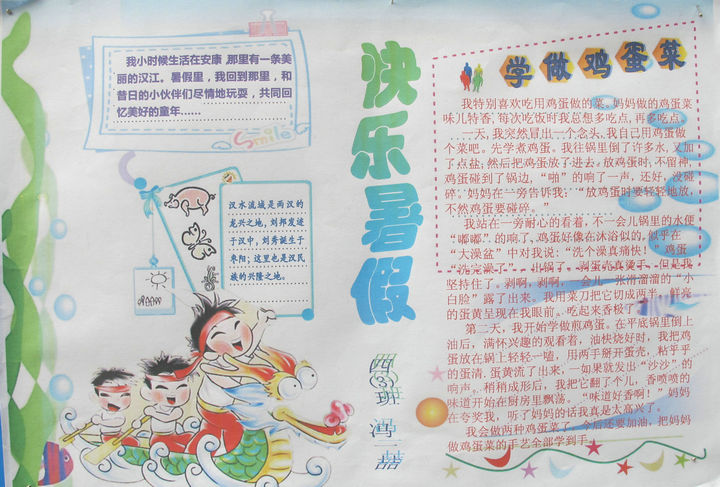 我小时候生活在安康,那里有一条美
丽的汉江。暑假里，我回到那里，和
昔日的小伙伴们尽情地玩耍，共同回
忆美好的童年……
Smile
汉水流域是两汉的
龙兴之地,刘邦发迹
于汉中,刘秀诞生于
枣阳；这里也是汉民
族的兴隆之地。
快乐暑假
四③班 冯一喆
学做鸡蛋菜
我特别喜欢吃用鸡蛋做的菜。妈妈做的鸡蛋菜
味儿特香,每次吃饭时我总想多吃点,再多吃点。
一天,我突然冒出一个念头,我自己用鸡蛋做
个菜吧。先学煮鸡蛋。我往锅里倒了许多水,又加
了点盐;然后把鸡蛋放了进去。放鸡蛋时,不留神,
鸡蛋碰到了锅边，“啪”的响了一声，还好，没碰
碎。妈妈在一旁告诉我：“放鸡蛋时要轻轻地放,
不然鸡蛋要碰碎。”
我站在一旁耐心的看着，不一会儿锅里的水便
“嘟嘟”的响了,鸡蛋好像在沐浴似的,似乎在
“大澡盆”中对我说：“洗个澡真痛快！”鸡蛋
“洗完澡了”，出锅了。剥蛋壳真烫手，但是我
坚持住了。剥啊，剥啊，一会儿一张滑溜溜的“小
白脸”露了出来。我用菜刀把它切成两半，鲜亮
的蛋黄呈现在我眼前。吃起来香极了！
第二天，我开始学做煎鸡蛋。在平底锅里倒上
油后，满怀兴趣的观看着，油快烧好时，我把鸡
蛋放在锅上轻轻一嗑，用两手掰开蛋壳，粘乎乎
的蛋清,蛋黄流了出来,一如果就发出“沙沙”的
响声。稍稍成形后，我把它翻了个儿，香喷喷的
味道开始在厨房里飘荡。“味道好香啊！”妈妈
在夸奖我，听了妈妈的话我真是太高兴了。
我会做两种鸡蛋菜了。今后还要加油，把妈妈
做鸡蛋菜的手艺全部学到手。